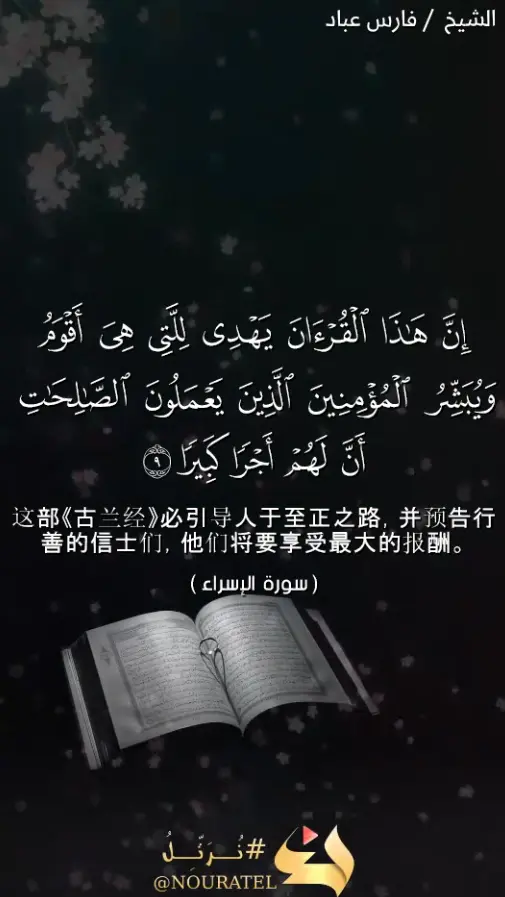 الشيخ / فارس عباد
إِنَّ هَٰذَا ٱلْقُرْءَانَ يَهْدِى لِلَّتِى هِىَ أَقْوَمُ
وَيُبَشِّرُ ٱلْمُؤْمِنِينَ ٱلَّذِينَ يَعْمَلُونَ ٱلصَّٰلِحَٰتِ
أَنَّ لَهُمْ أَجْرًا كَبِيرًا ٩
这部《古兰经》必引导人于至正之路, 并预告行
善的信士们, 他们将要享受最大的报酬。
( سورة الإسراء )
#نُرَتّلُ
@NOURATEL